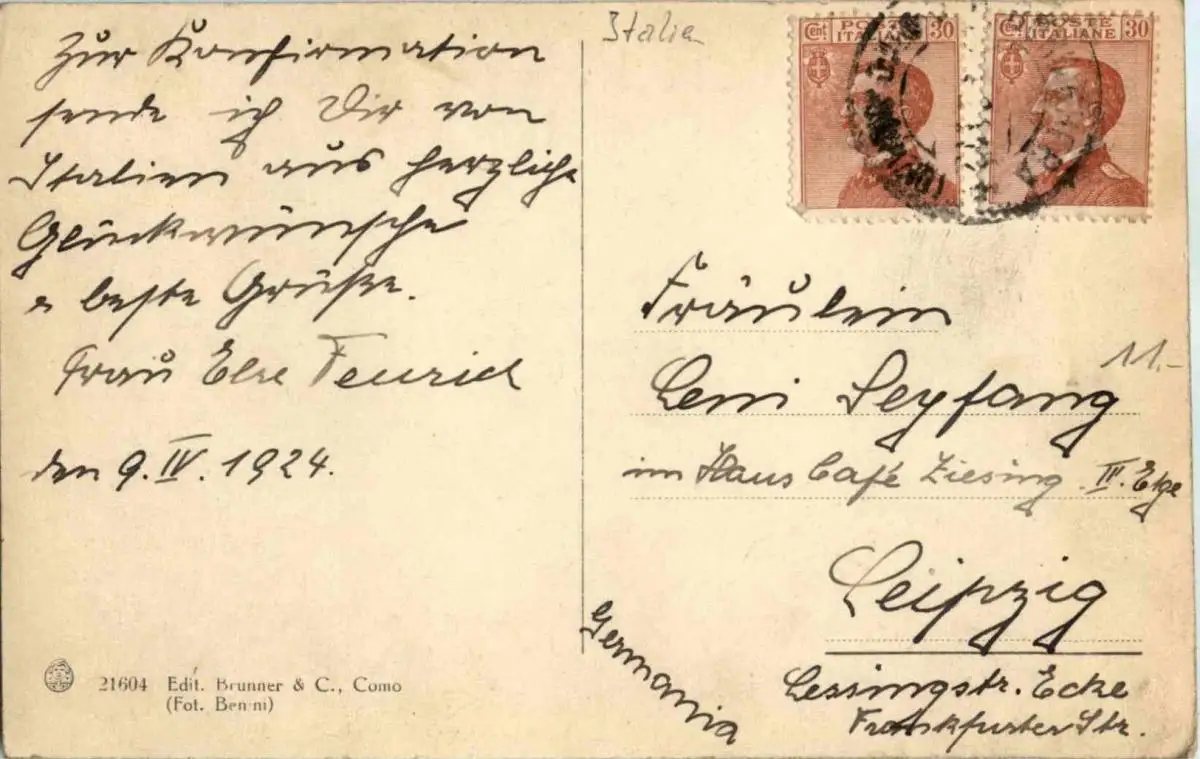 Zur Konfirmation
sende ich Dir von
Italien aus herzliche
Glückwünsche
u beste Grüße.
Frau Else Feurich
den 9. IV. 1924.
21604 Edit. Brunner & C., Como
(Fot. Benini)
Italien
Cent POSTE ITALIANE 30
Cent POSTE ITALIANE 30
Fräulein
Leni Seyfang
11.-
im Haus Café Ziesing. III. Etge
Leipzig
Germania
Lessingstr. Ecke
Frankfurter Str.